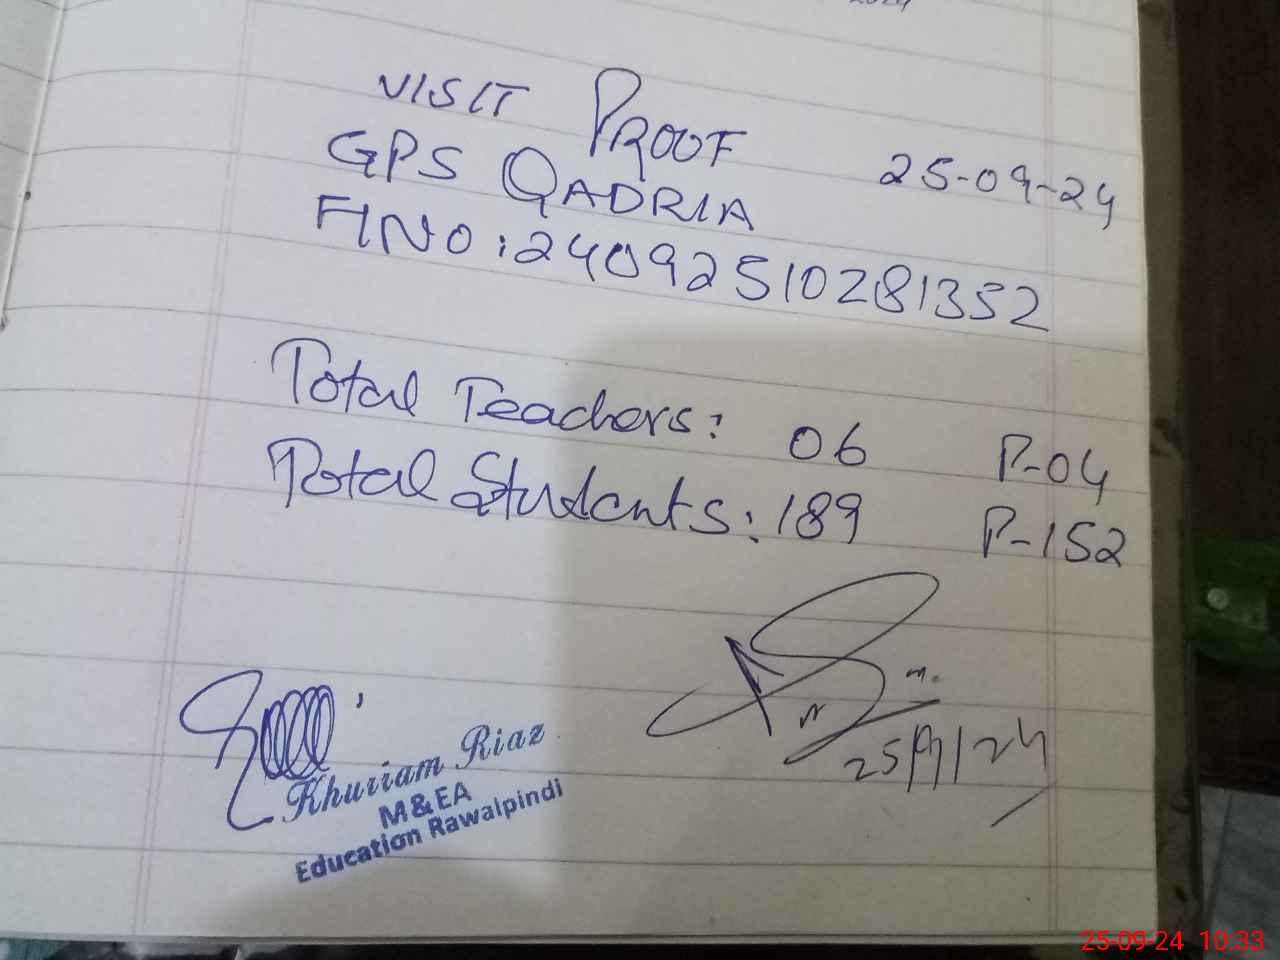 2024
VISIT PROOF
GPS QADRIA 25-09-24
FINO: 24092510281352
Total Teachers: 06 P-04
Total Students: 189 P-152
25/9/24
Khurram Riaz
M&EA
Education Rawalpindi
25-09-24 10:33